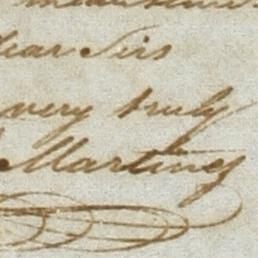 Dear Sirs
very truly
Martinez